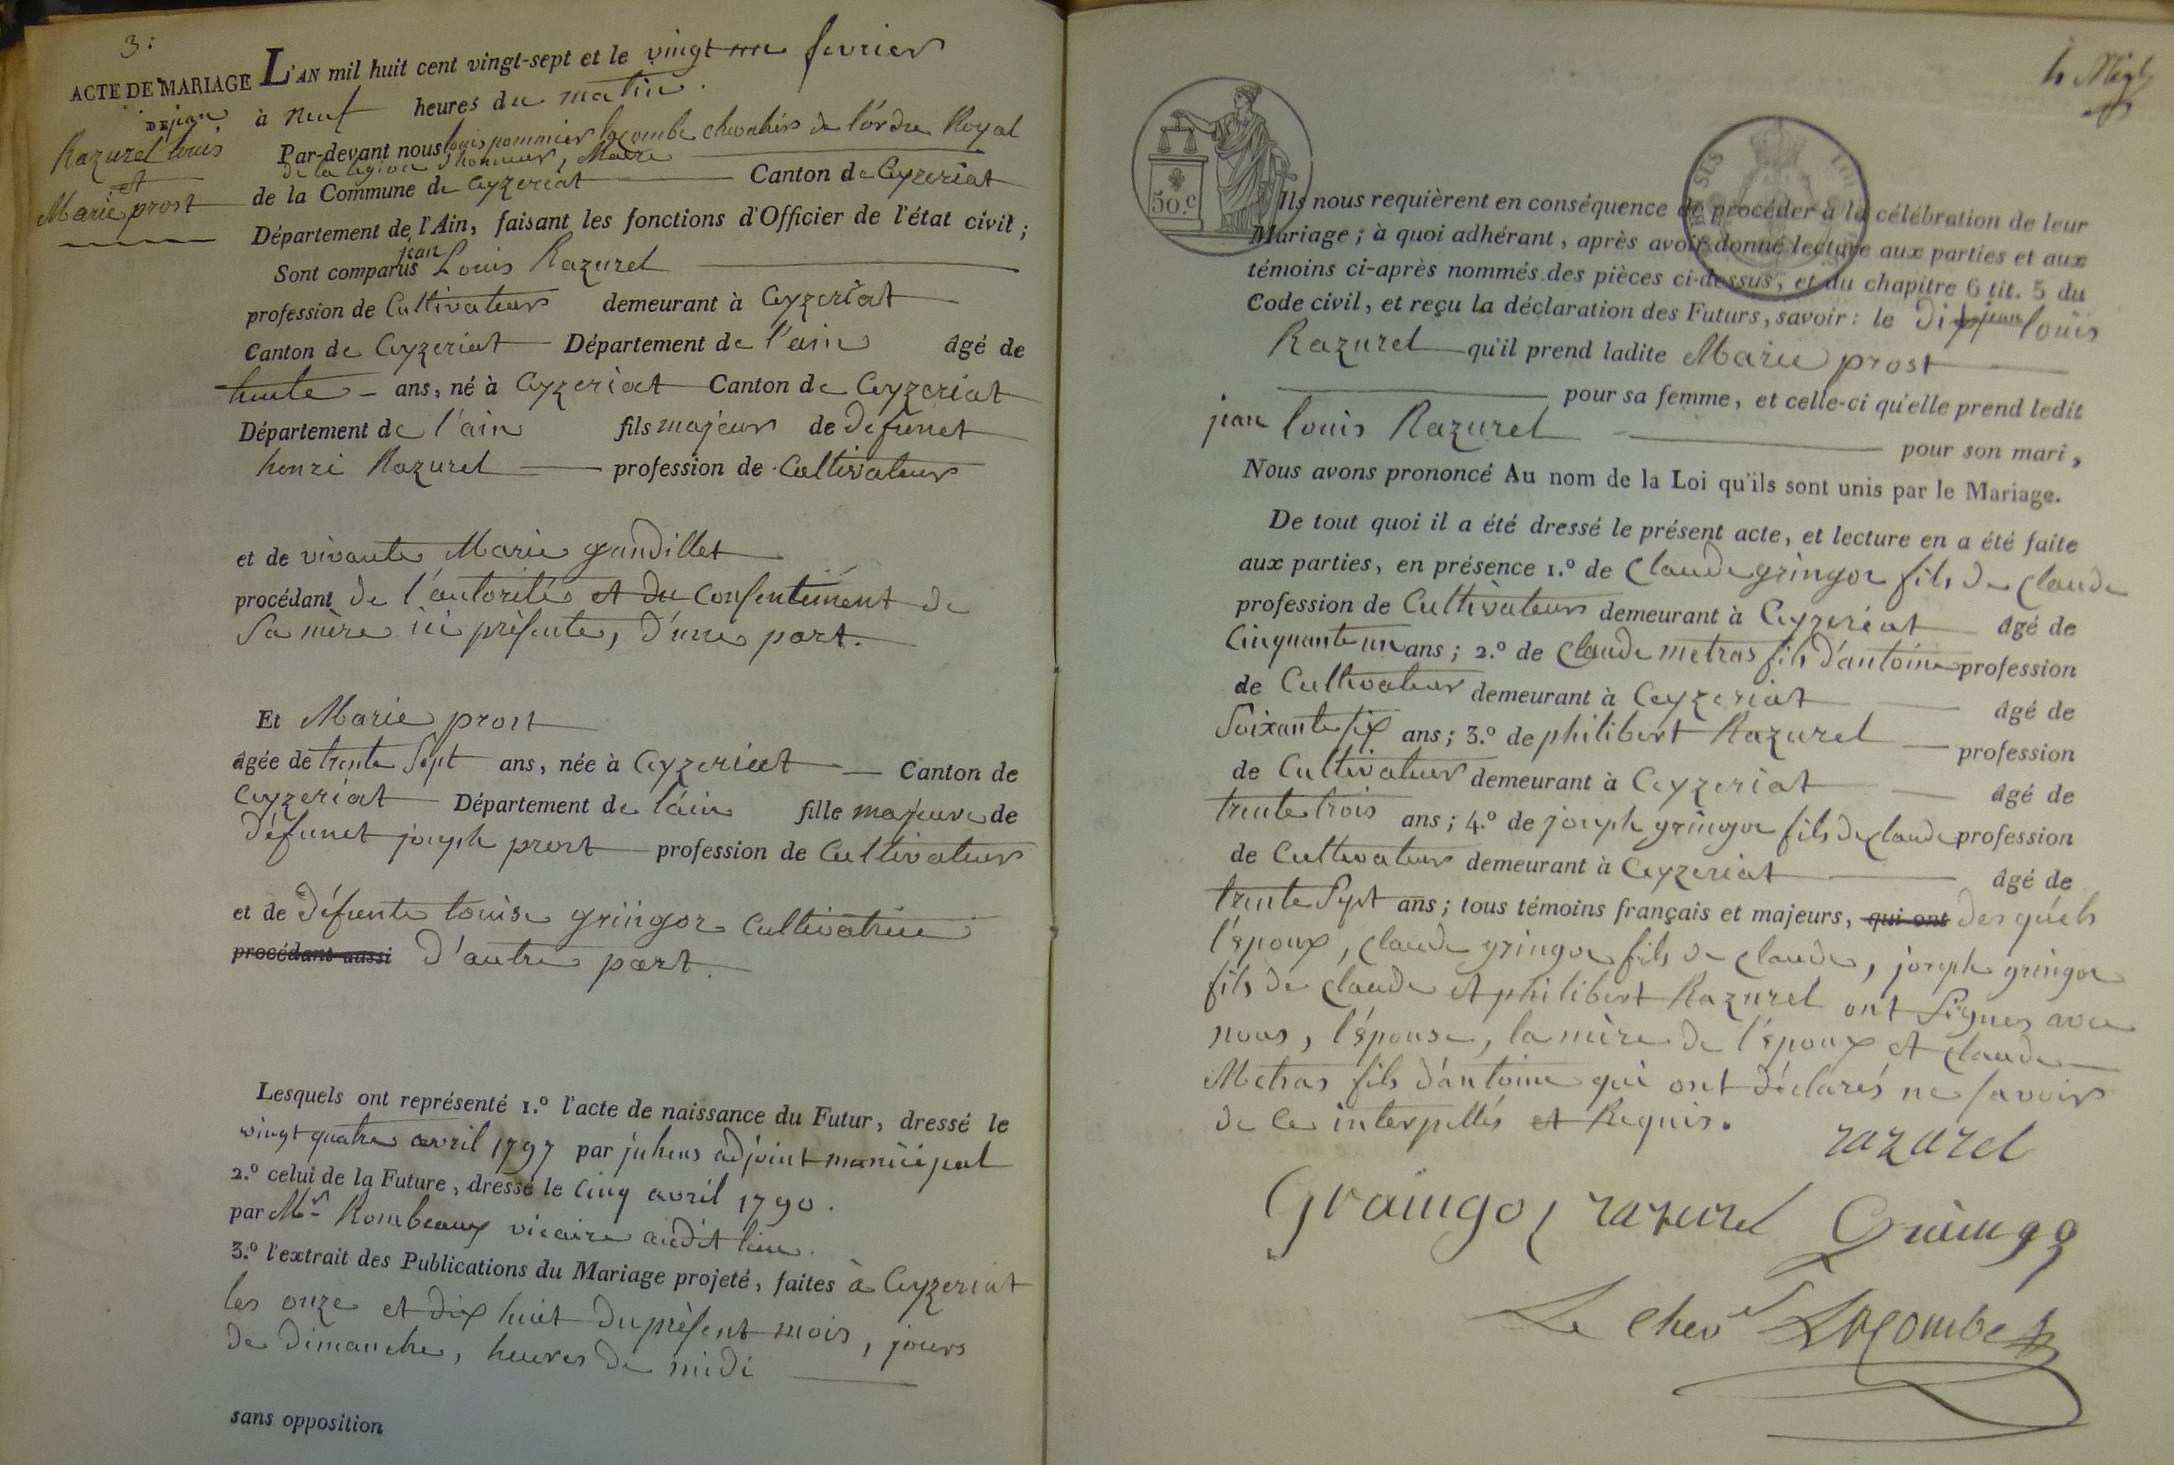 3:
ACTE DE MARIAGE
DE jean
Razurel louis
et
Marie prost
L'AN mil huit cent vingt-sept et le vingt fevrier
à neuf heures du matin.
Par-devant nous louis pommier lacombe chevalier de l'ordre Royal
de la légion d'honneur, Maire
de la Commune de Ceyzeriat Canton de Ceyzeriat
Département de l'Ain, faisant les fonctions d'Officier de l'état civil;
Sont comparus jean Louis Razurel
profession de Cultivateur demeurant à Ceyzeriat
Canton de Ceyzeriat Département de l'ain âgé de
trente ans, né à Ceyzeriat Canton de Ceyzeriat
Département de l'ain fils majeur de defunct
henri Razurel profession de Cultivateur
et de vivante Marie gandillet
procédant de l'autorité et du Consentement de
Sa mère ici présente, d'une part.
Et Marie prost
âgée de trente Sept ans, née à Ceyzeriat Canton de
Ceyzeriat Département de l'ain fille majeure de
défunct joseph prost profession de Cultivateur
et de défunte louise gringoz Cultivatrice
procédant aussi D'autre part.
Lesquels ont représenté 1.º l'acte de naissance du Futur, dressé le
vingt quatre avril 1797 par juhens adjoint municipal
2.º celui de la Future, dressé le Cinq avril 1790.
par Mr Rombeaux vicaire audit lieu.
3.º l'extrait des Publications du Mariage projeté, faites à Ceyzeriat
les onze et dix huit du présent mois, jours
de dimanche, heures de midi
sans opposition
50.c
Ils nous requièrent en conséquence de procéder à la célébration de leur
Mariage; à quoi adhérant, après avoir donné lecture aux parties et aux
témoins ci-après nommés des pièces ci-dessus, et du chapitre 6 tit. 5 du
Code civil, et reçu la déclaration des Futurs, savoir: le dit jean louis
Razurel qu'il prend ladite Marie prost
pour sa femme, et celle-ci qu'elle prend ledit
jean louis Razurel pour son mari,
Nous avons prononcé Au nom de la Loi qu'ils sont unis par le Mariage.
De tout quoi il a été dressé le présent acte, et lecture en a été faite
aux parties, en présence 1.º de Claude gringoz fils de Claude
profession de Cultivateur demeurant à Ceyzeriat âgé de
Cinquante un ans; 2.º de Claude metras fils d'antoine profession
de Cultivateur demeurant à Ceyzeriat âgé de
Soixante six ans; 3.º de philibert Razurel profession
de Cultivateur demeurant à Ceyzeriat âgé de
trente trois ans; 4.º de joseph gringoz fils de Claude profession
de Cultivateur demeurant à Ceyzeriat âgé de
trente Sept ans; tous témoins français et majeurs, qui ont des quels
l'époux, Claude gringoz fils de Claude, joseph gringoz
fils de Claude et philibert Razurel ont Signés avec
nous, l'épouse, la mère de l'époux et Claude
Metras fils d'antoine qui ont déclarés ne savoir
de ce interpellés et Requis.
razurel
Graingoz razurel Graingoz
Le Chev Lacombe